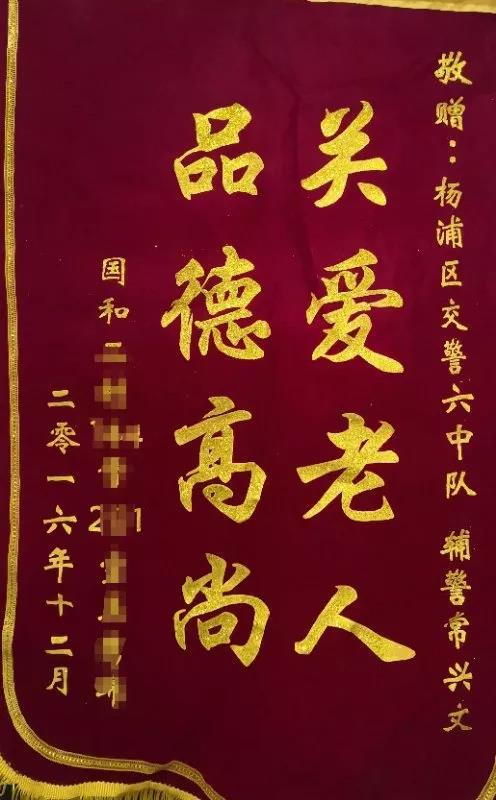 敬赠：杨浦区交警六中队 辅警常兴文
关爱老人
品德高尚
国和二
二零一六年十二月